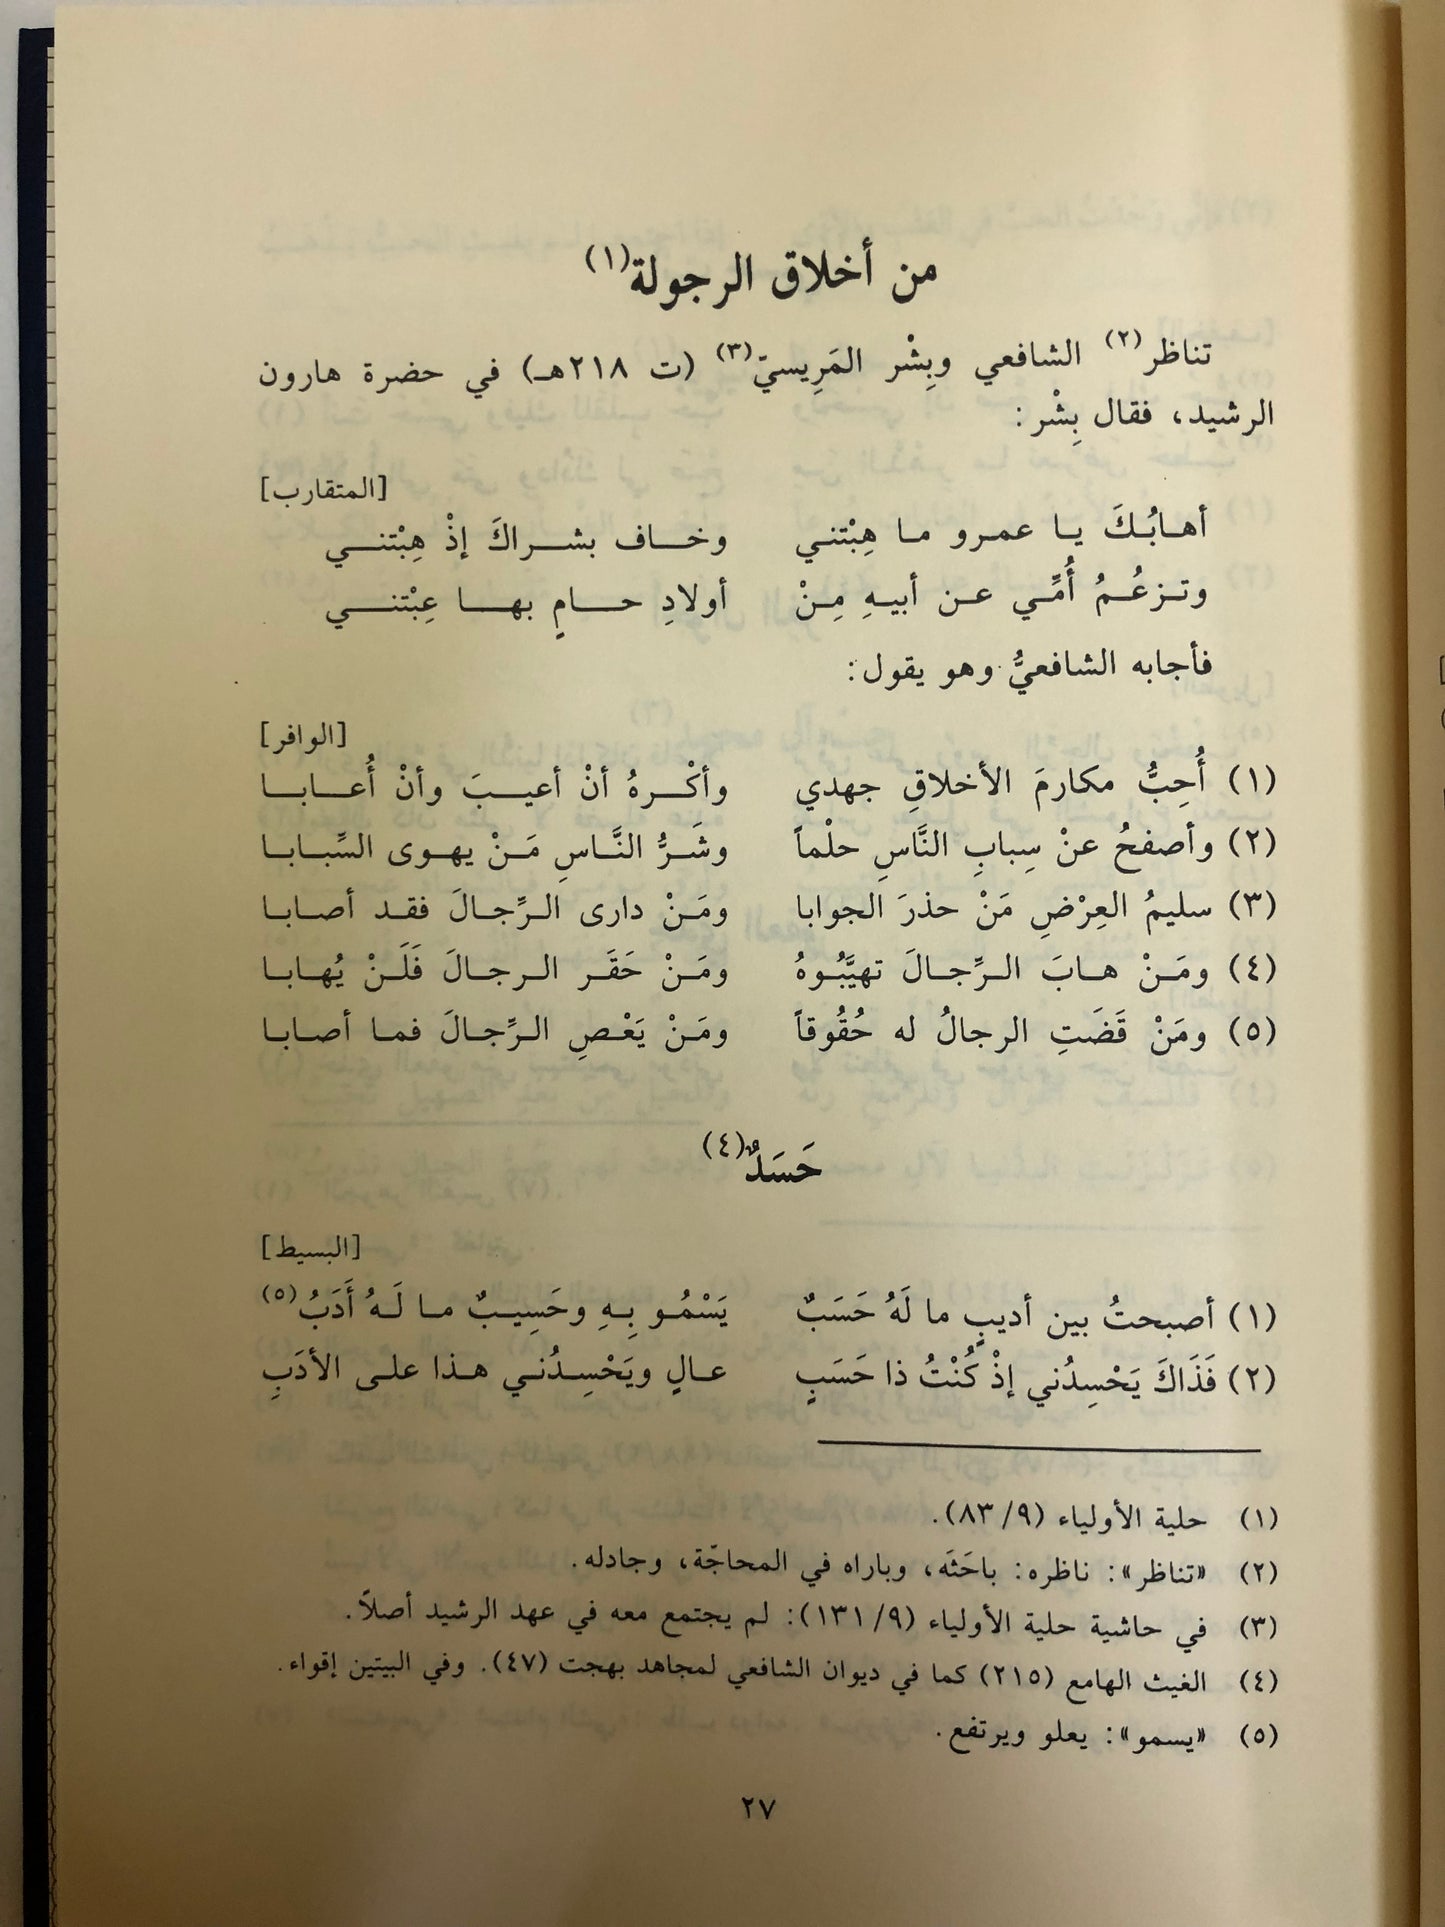 من أخلاق الرجولة(١)
تناظر(٢) الشافعي وبِشْر المَرِيسيّ(٣) (ت ٢١٨هـ) في حضرة هارون
الرشيد، فقال بِشْر:
[المتقارب]
أهابُكَ يا عمرو ما هِبْتني وخاف بشراكَ إذْ هِبْتني
وتزعُمُ أُمِّي عن أبيهِ مِنْ أولادِ حامٍ بها عِبْتني
فأجابه الشافعيُّ وهو يقول:
[الوافر]
(١) أُحِبُّ مكارمَ الأخلاقِ جهدي وأكْرهُ أنْ أعيبَ وأنْ أُعابا
(٢) وأصفحُ عنْ سِبابِ النَّاسِ حلْماً وشَرُّ النَّاسِ مَنْ يهوى السِّبابا
(٣) سليمُ العِرْضِ مَنْ حذرَ الجوابا ومَنْ دارى الرِّجالَ فقد أصابا
(٤) ومَنْ هابَ الرِّجالَ تهيَّبُوهُ ومَنْ حَقَر الرجالَ فَلَنْ يُهابا
(٥) ومَنْ قَضَتِ الرجالُ له حُقُوقاً ومَنْ يَعْصِ الرِّجالَ فما أصابا
حَسَدٌ(٤)
[البسيط]
(١) أصبحتُ بين أديبٍ ما لَهُ حَسَبٌ يَسْمُو بِهِ وحَسِيبٌ ما لَهُ أَدَبُ(٥)
(٢) فَذَاكَ يَحْسِدُني إذْ كُنْتُ ذا حَسَبٍ عالٍ ويَحْسِدُني هذا على الأدَبِ
(١) حلية الأولياء (٩/ ٨٣).
(٢) «تناظر»: ناظره: باحَثَه، وباراه في المحاجّة، وجادله.
(٣) في حاشية حلية الأولياء (٩/ ١٣١): لم يجتمع معه في عهد الرشيد أصلاً.
(٤) الغيث الهامع (٢١٥) كما في ديوان الشافعي لمجاهد بهجت (٤٧). وفي البيتين إقواء.
(٥) «يسمو»: يعلو ويرتفع.
٢٧